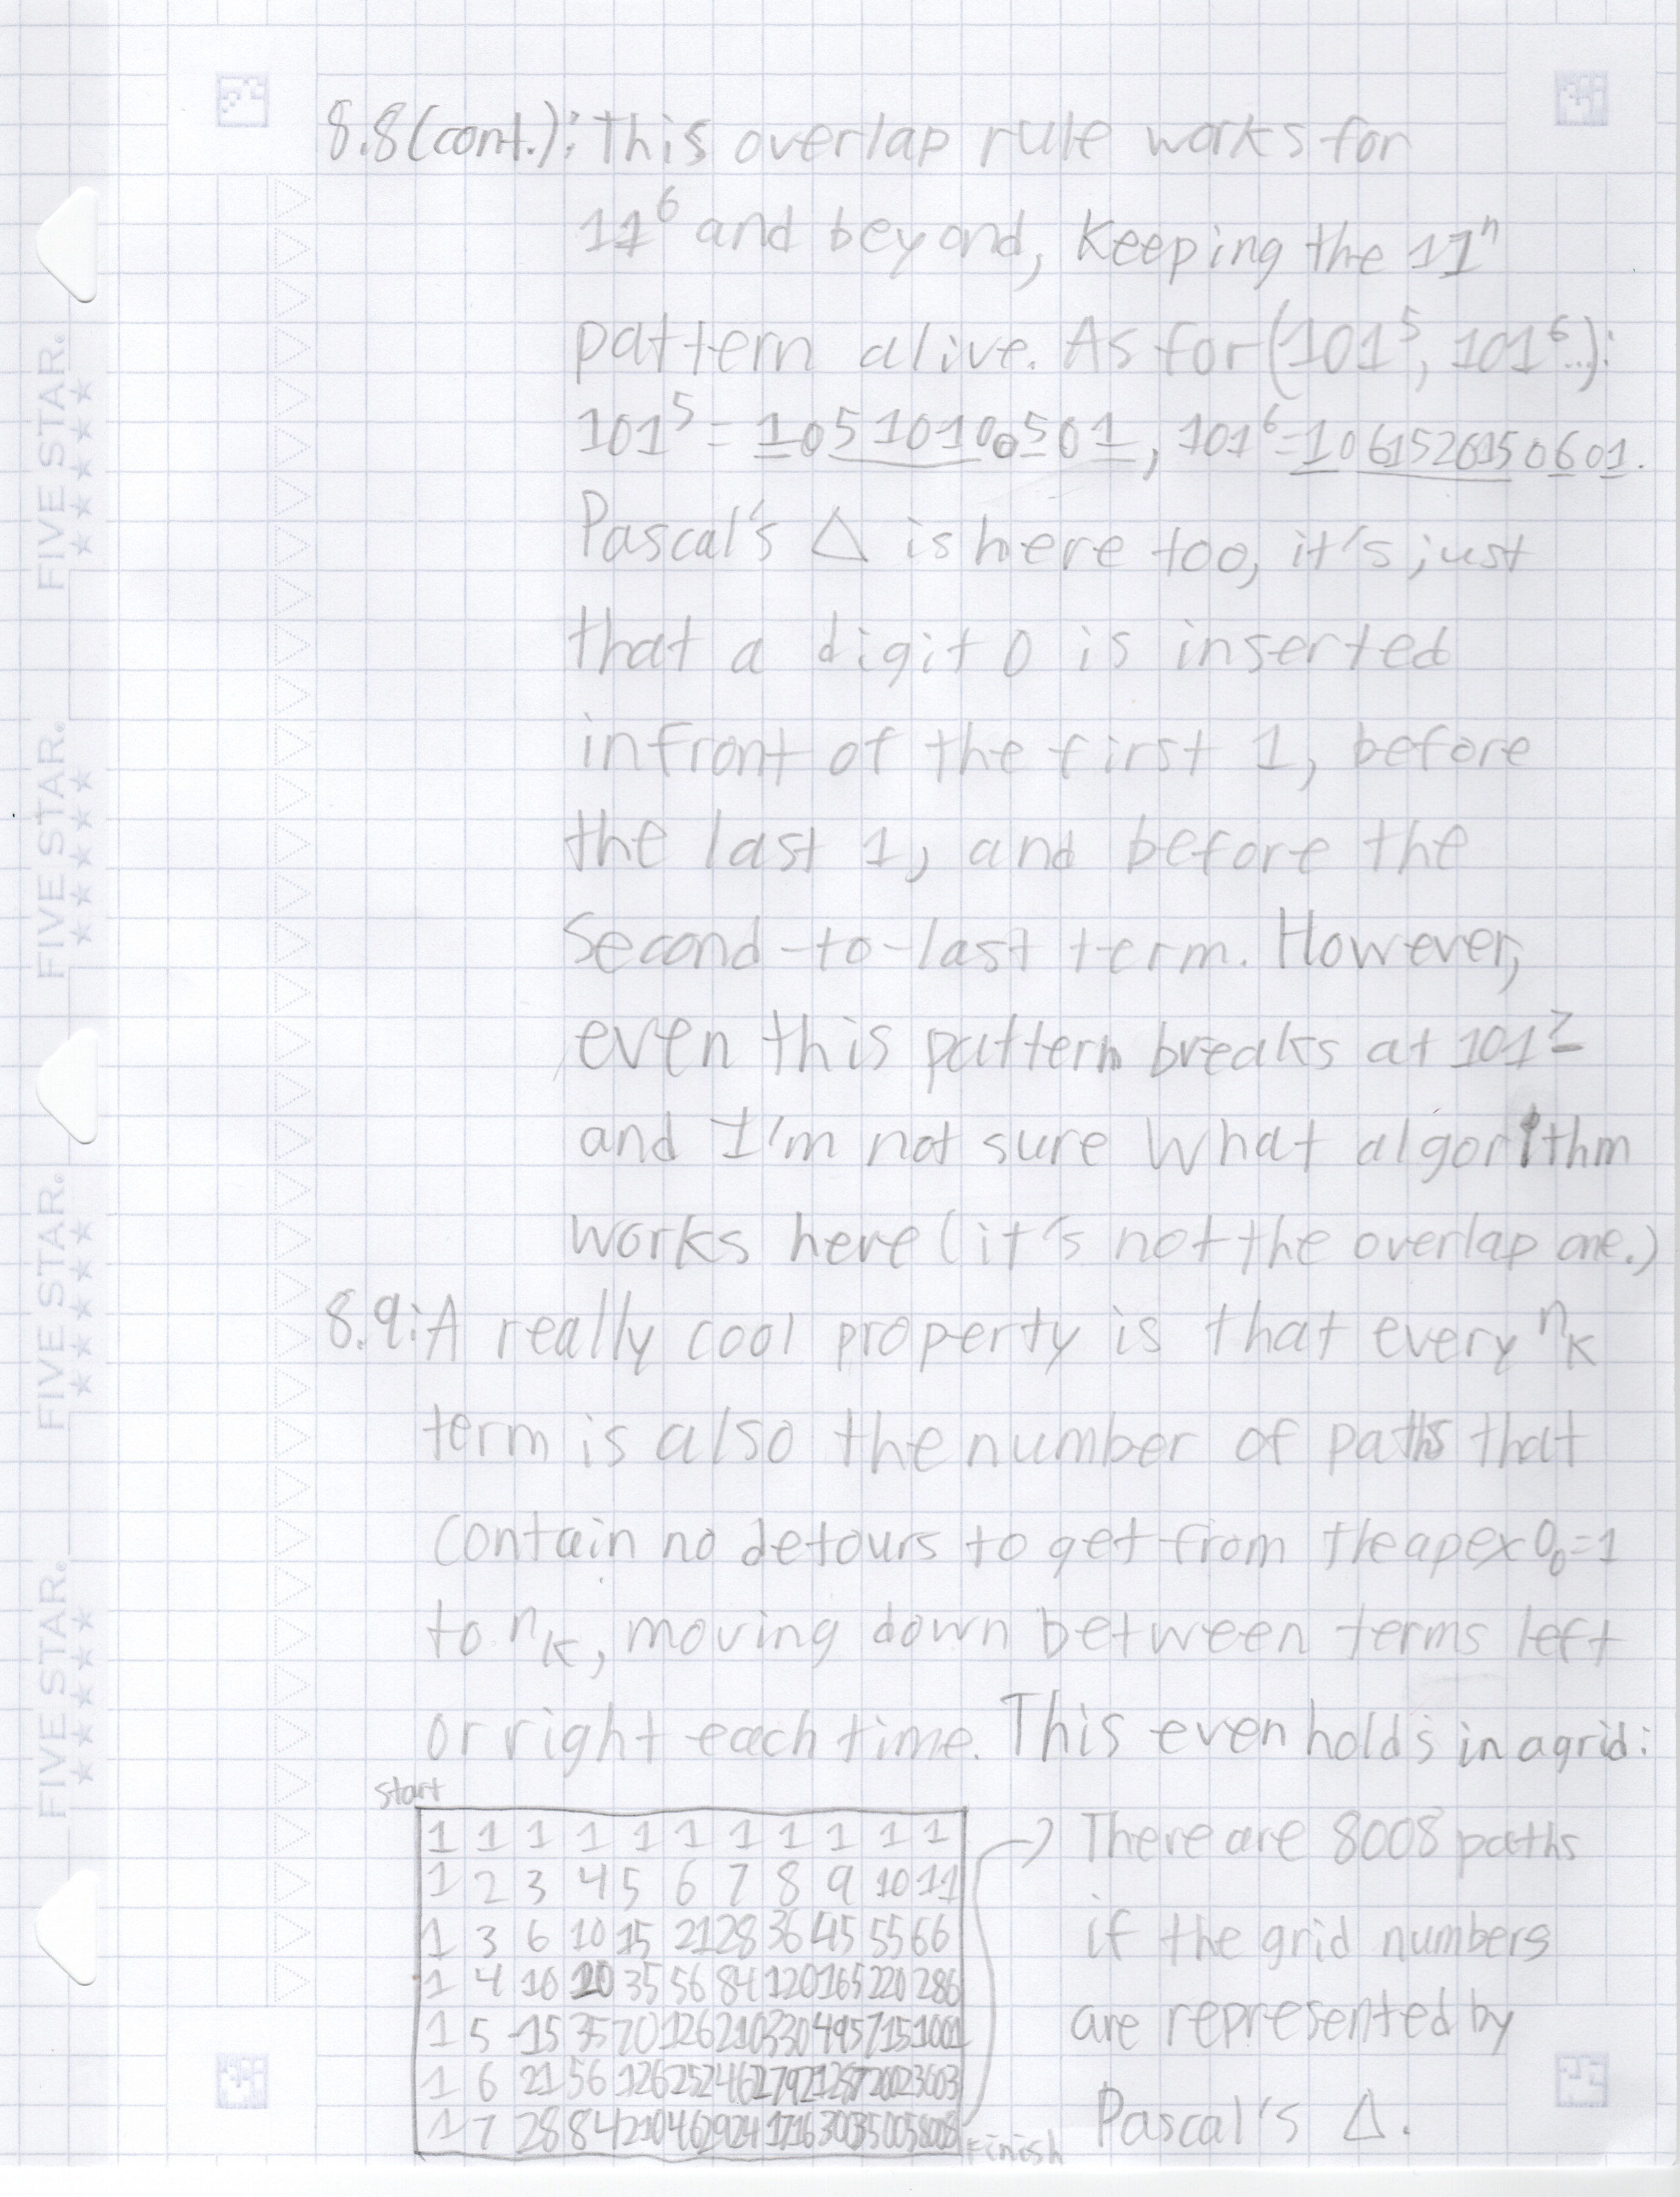 8.8(cont.): This overlap rule works for
11⁶ and beyond, keeping the 11ⁿ
pattern alive. As for (101⁵, 101⁶...):
101⁵ = 10510100501, 101⁶ = 1061520150601.
Pascal's △ is here too, it's just
that a digit 0 is inserted
infront of the first 1, before
the last 1, and before the
second-to-last term. However,
even this pattern breaks at 101⁷
and I'm not sure what algorithm
works here (it's not the overlap one.)
8.9: A really cool property is that every nₖ
term is also the number of paths that
contain no detours to get from the apex 0₀=1
to nₖ, moving down between terms left
or right each time. This even holds in a grid:
start
1 1 1 1 1 1 1 1 1 1 1
1 2 3 4 5 6 7 8 9 10 11
1 3 6 10 15 21 28 36 45 55 66
1 4 10 20 35 56 84 120 165 220 286
1 5 15 35 70 126 210 330 495 715 1001
1 6 21 56 126 252 462 792 1287 2002 3003
1 7 28 84 210 462 924 1716 3003 5005 8008
Finish
There are 8008 paths
if the grid numbers
are represented by
Pascal's △.
FIVE STAR.
FIVE STAR.
FIVE STAR.
FIVE STAR.